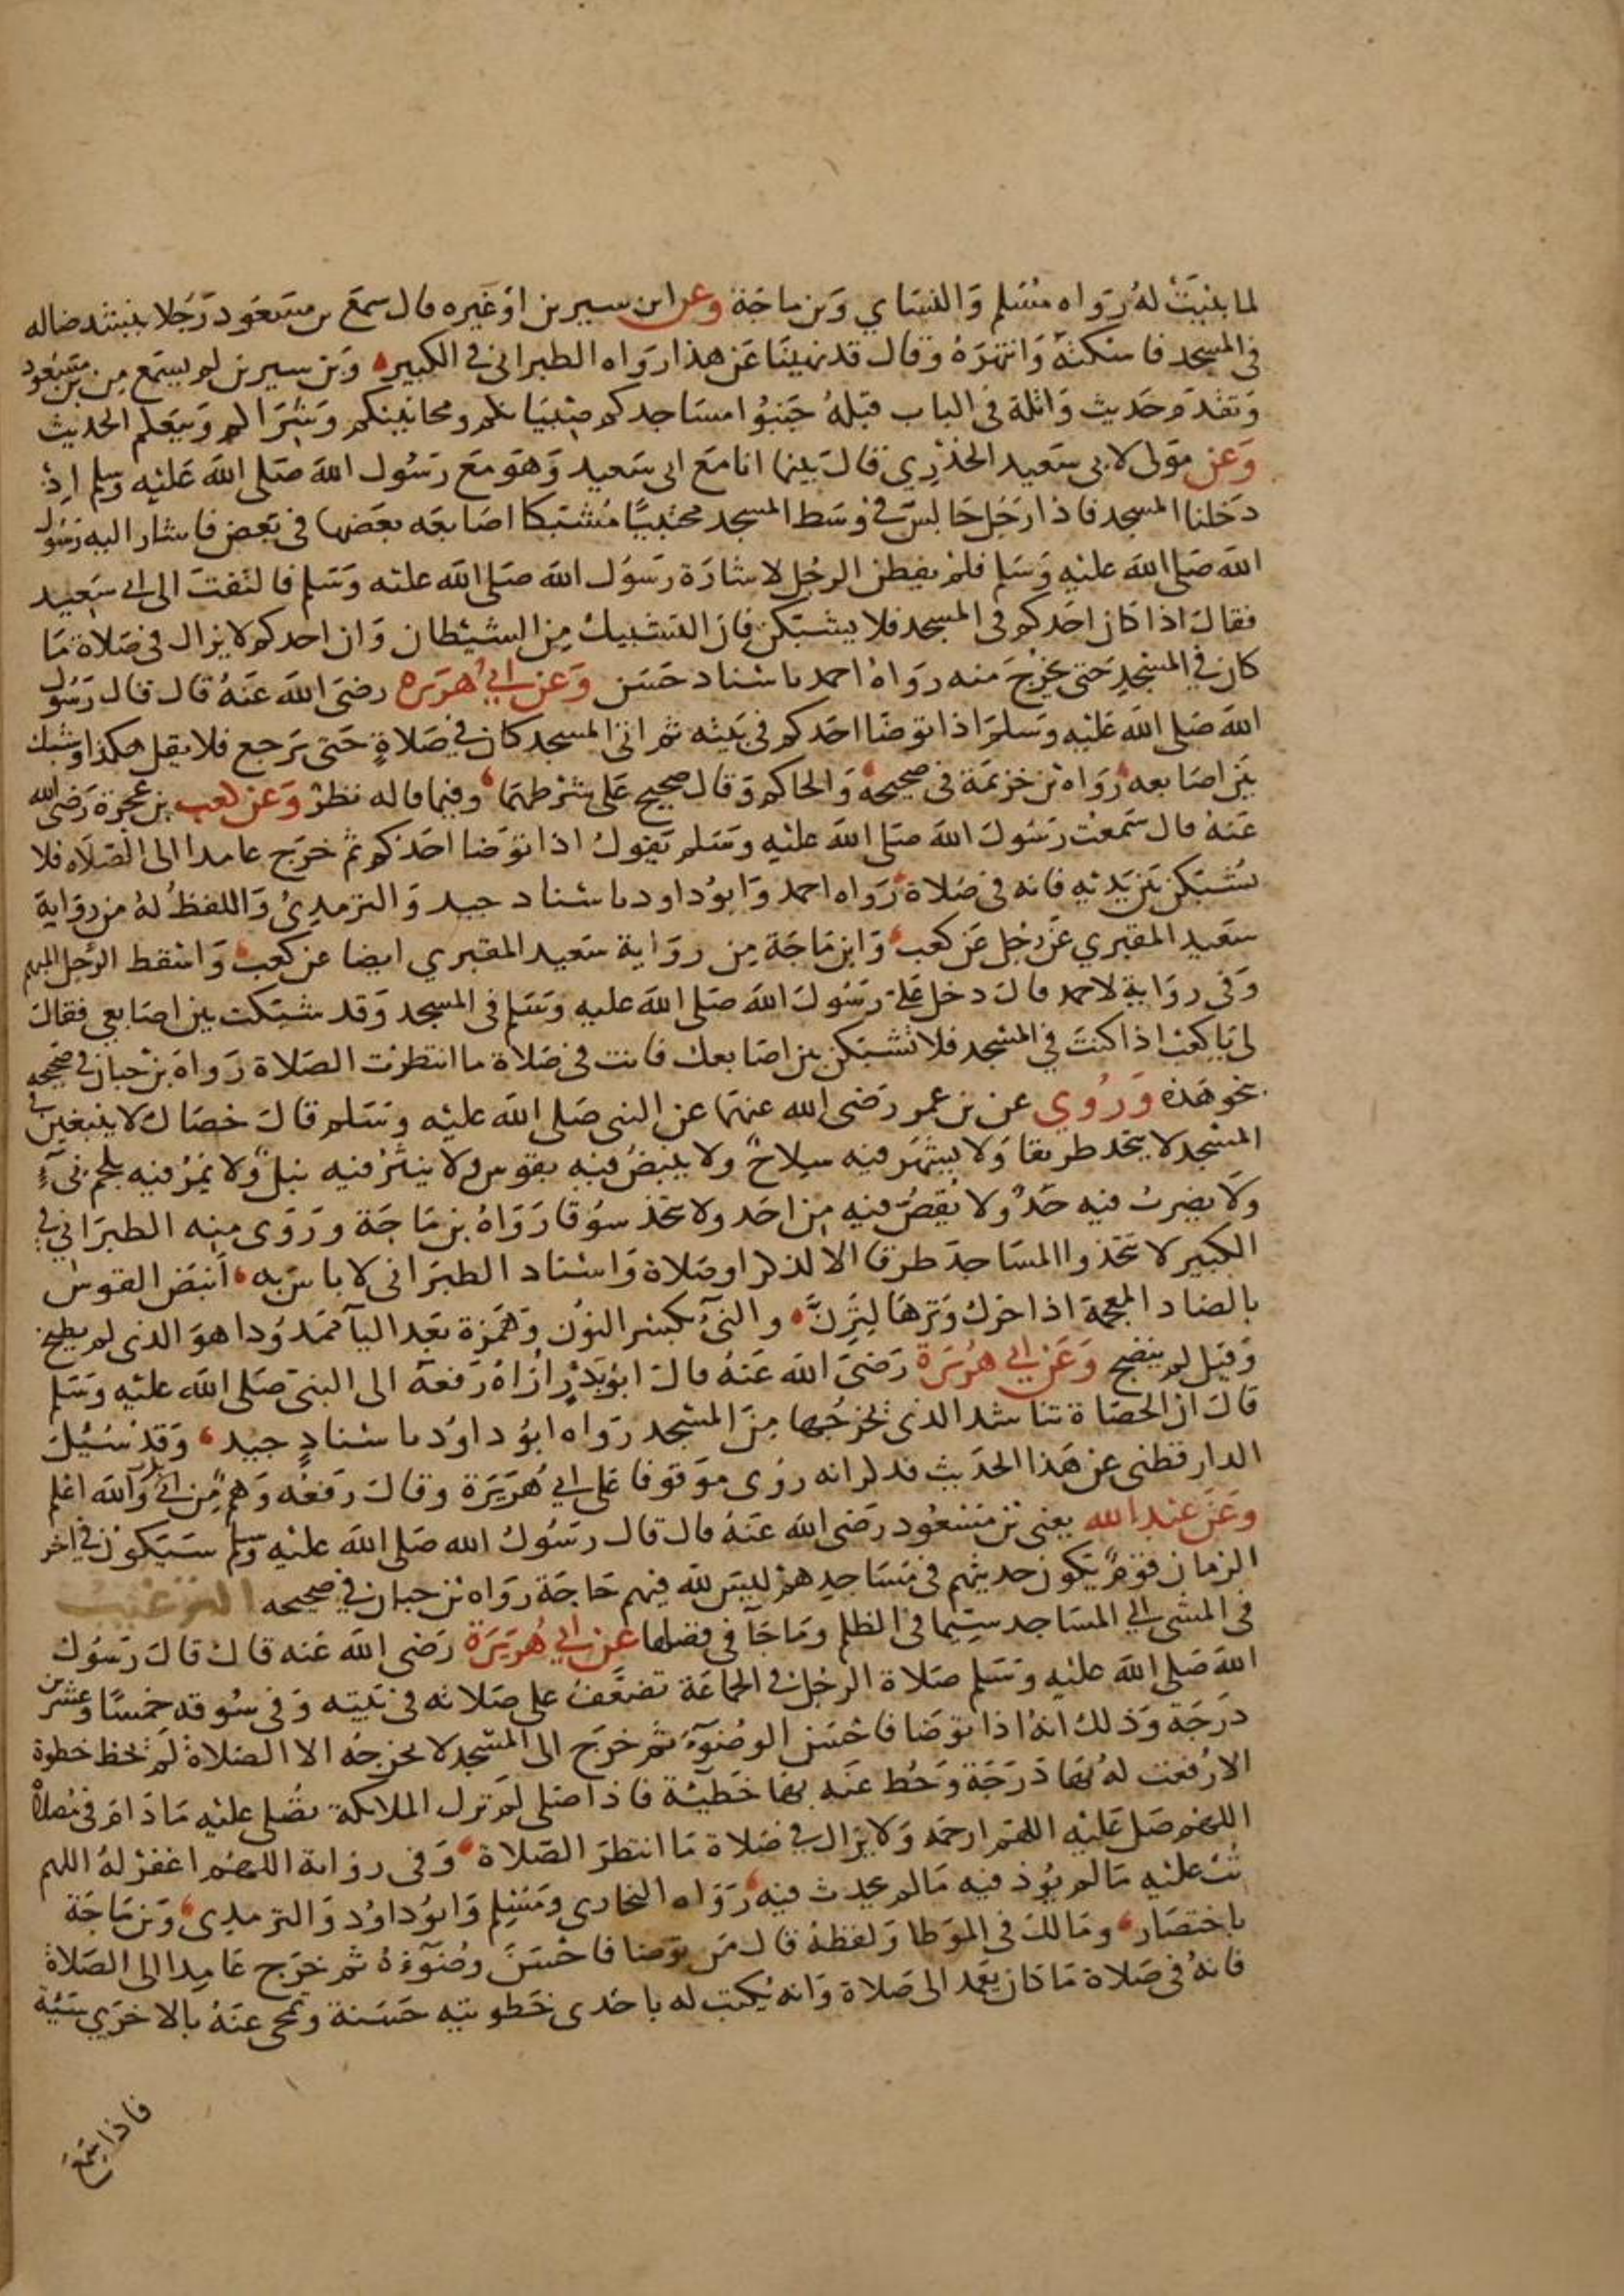 لما بنيت له رواه مسلم والنساي وبن ماجة وعن ابن سيرين او غيره قال سمع بن مسعود رجلا ينشد ضاله
في المسجد فاسكته وانتهره وقال قد نهينا عن هذا رواه الطبراني في الكبير وبن سيرين لم يسمع من بن مسعود
وتقدم حديث واثلة في الباب قبله جنبوا مساجدكم صبيانكم ومجانينكم وشراكم وبيعكم الحديث
وعن مولى لابي سعيد الخدري قال بينما انا مع ابي سعيد وهو مع رسول الله صلى الله عليه وسلم اذ
دخلنا المسجد فاذا رجل جالس في وسط المسجد محتبيا مشبكا اصابعه بعضها في بعض فاشار اليه رسول
الله صلى الله عليه وسلم فلم يفطن الرجل لاشارة رسول الله صلى الله عليه وسلم فالتفت الى ابي سعيد
فقال اذا كان احدكم في المسجد فلا يشبكن فان التشبيك من الشيطان وان احدكم لا يزال في صلاة ما
كان في المسجد حتى يخرج منه رواه احمد باسناد حسن وعن ابي هريره رضي الله عنه قال قال رسول
الله صلى الله عليه وسلم اذا توضا احدكم في بيته ثم اتى المسجد كان في صلاة حتى يرجع فلا يقل هكذا وشبك
بين اصابعه رواه بن خزيمة في صحيحه والحاكم وقال صحيح على شرطهما وفيما قاله نظر وعن كعب بن عجرة رضي الله
عنه قال سمعت رسول الله صلى الله عليه وسلم يقول اذا توضا احدكم ثم خرج عامدا الى الصلاه فلا
يشبكن بين يديه فانه في صلاة رواه احمد وابو داود باسناد جيد والترمذي واللفظ له من رواية
سعيد المقبري عن رجل عن كعب وابن ماجة من رواية سعيد المقبري ايضا عن كعب واسقط الرجل المبهم
وفي رواية لاحمد قال دخل علي رسول الله صلى الله عليه وسلم في المسجد وقد شبكت بين اصابعي فقال
لي يا كعب اذا كنت في المسجد فلا تشبكن بين اصابعك فانت في صلاة ما انتظرت الصلاة رواه بن حبان في صحيحه
بنحو هذه وروي عن بن عمر رضي الله عنهما عن النبي صلى الله عليه وسلم قال خصال لا ينبغين في
المسجد لا يتخد طريقا ولا يشهر فيه سلاح ولا ينبض فيه بقوس ولا ينثر فيه نبل ولا يمر فيه بلحم نيء
ولا يضرب فيه حد ولا يقص فيه من احد ولا يتخذ سوقا رواه بن ماجة وروى منه الطبراني في
الكبير لا تتخذوا المساجد طرقا الا لذكر او صلاة واسناد الطبراني لا باس به انبض القوس
بالضاد المعجمة اذا حرك وترها لترن والنيء بكسر النون وهمزة بعد اليا ممدودا هو الذي لم يطبخ
وقيل لم ينضج وعن ابي هريرة رضي الله عنه قال ابو بدر اراه رفعه الى النبي صلى الله عليه وسلم
قال ان الحصاة تناشد الذي يخرجها من المسجد رواه ابو داود باسناد جيد وقد سئل
الدارقطني عن هذا الحديث فذكر انه روي موقوفا على ابي هريرة وقال رفعه وهم من ابي بدر والله اعلم
وعن عبد الله يعني بن مسعود رضي الله عنه قال قال رسول الله صلى الله عليه وسلم سيكون في اخر
الزمان قوم يكون حديثهم في مساجدهم ليس لله فيهم حاجة رواه بن حبان في صحيحه الترغيب
في المشي الى المساجد سيما في الظلم وما جا في فضلها عن ابي هريرة رضي الله عنه قال قال رسول
الله صلى الله عليه وسلم صلاة الرجل في الجماعة تضعف على صلاته في بيته وفي سوقه خمسا وعشرين
درجة وذلك انه اذا توضا فاحسن الوضوء ثم خرج الى المسجد لا يخرجه الا الصلاة لم يخط خطوة
الا رفعت له بها درجة وحط عنه بها خطيئة فاذا صلى لم تزل الملائكة تصلي عليه ما دام في مصلاه
اللهم صل عليه اللهم ارحمه ولا يزال في صلاة ما انتظر الصلاة وفي رواية اللهم اغفر له اللهم
تب عليه ما لم يوذ فيه ما لم يحدث فيه رواه البخاري ومسلم وابو داود والترمذي وبن ماجة
باختصار ومالك في الموطا ولفظه قال من توضا فاحسن وضوءه ثم خرج عامدا الى الصلاة
فانه في صلاة ما كان يعمد الى صلاة وانه يكتب له باحدى خطوتيه حسنة وتمحى عنه بالاخرى سيئة
فاذا سمع